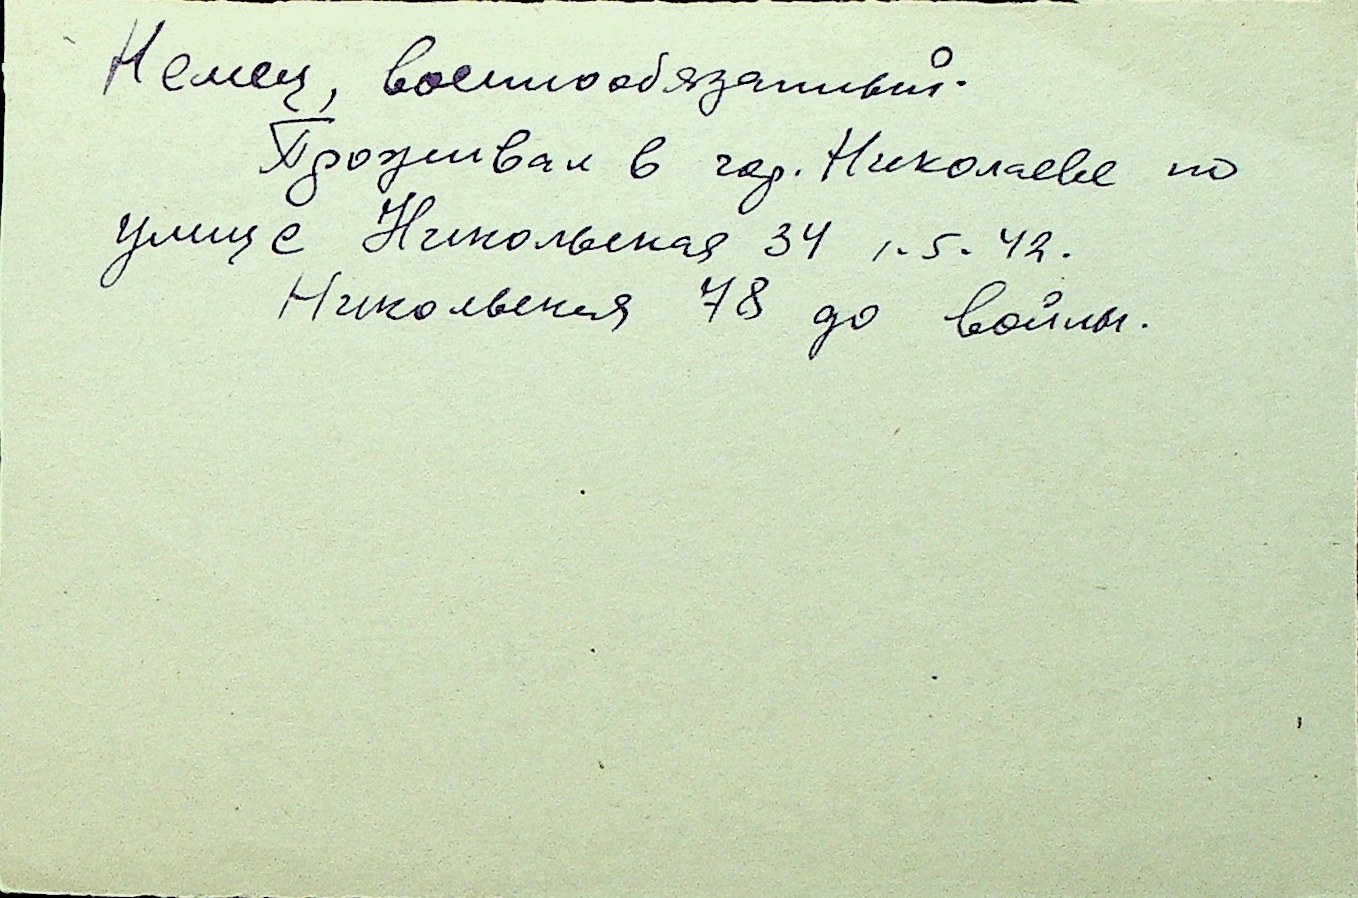 Немец, военнообязанный.
Проживал в гор. Николаеве по
улице Никольская 34 1.5.42.
Никольская 78 до войны.